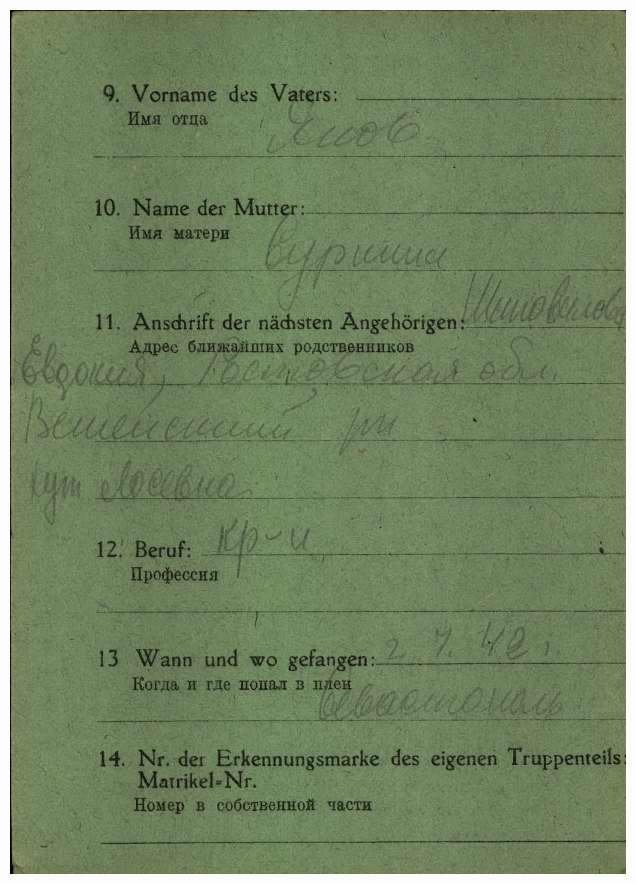 9. Vorname des Vaters:
Имя отца
Яков
10. Name der Mutter:
Имя матери
11. Anschrift der nächsten Angehörigen:
Адрес ближайших родственников
Евдокия, Ростовская обл.
Вешенский рн
хут
12. Beruf: кр-н
Профессия
13 Wann und wo gefangen: 2. 7. 42 г.
Когда и где попал в плен
Севастополь
14. Nr. der Erkennungsmarke des eigenen Truppenteils:
Matrikel-Nr.
Номер в собственной части